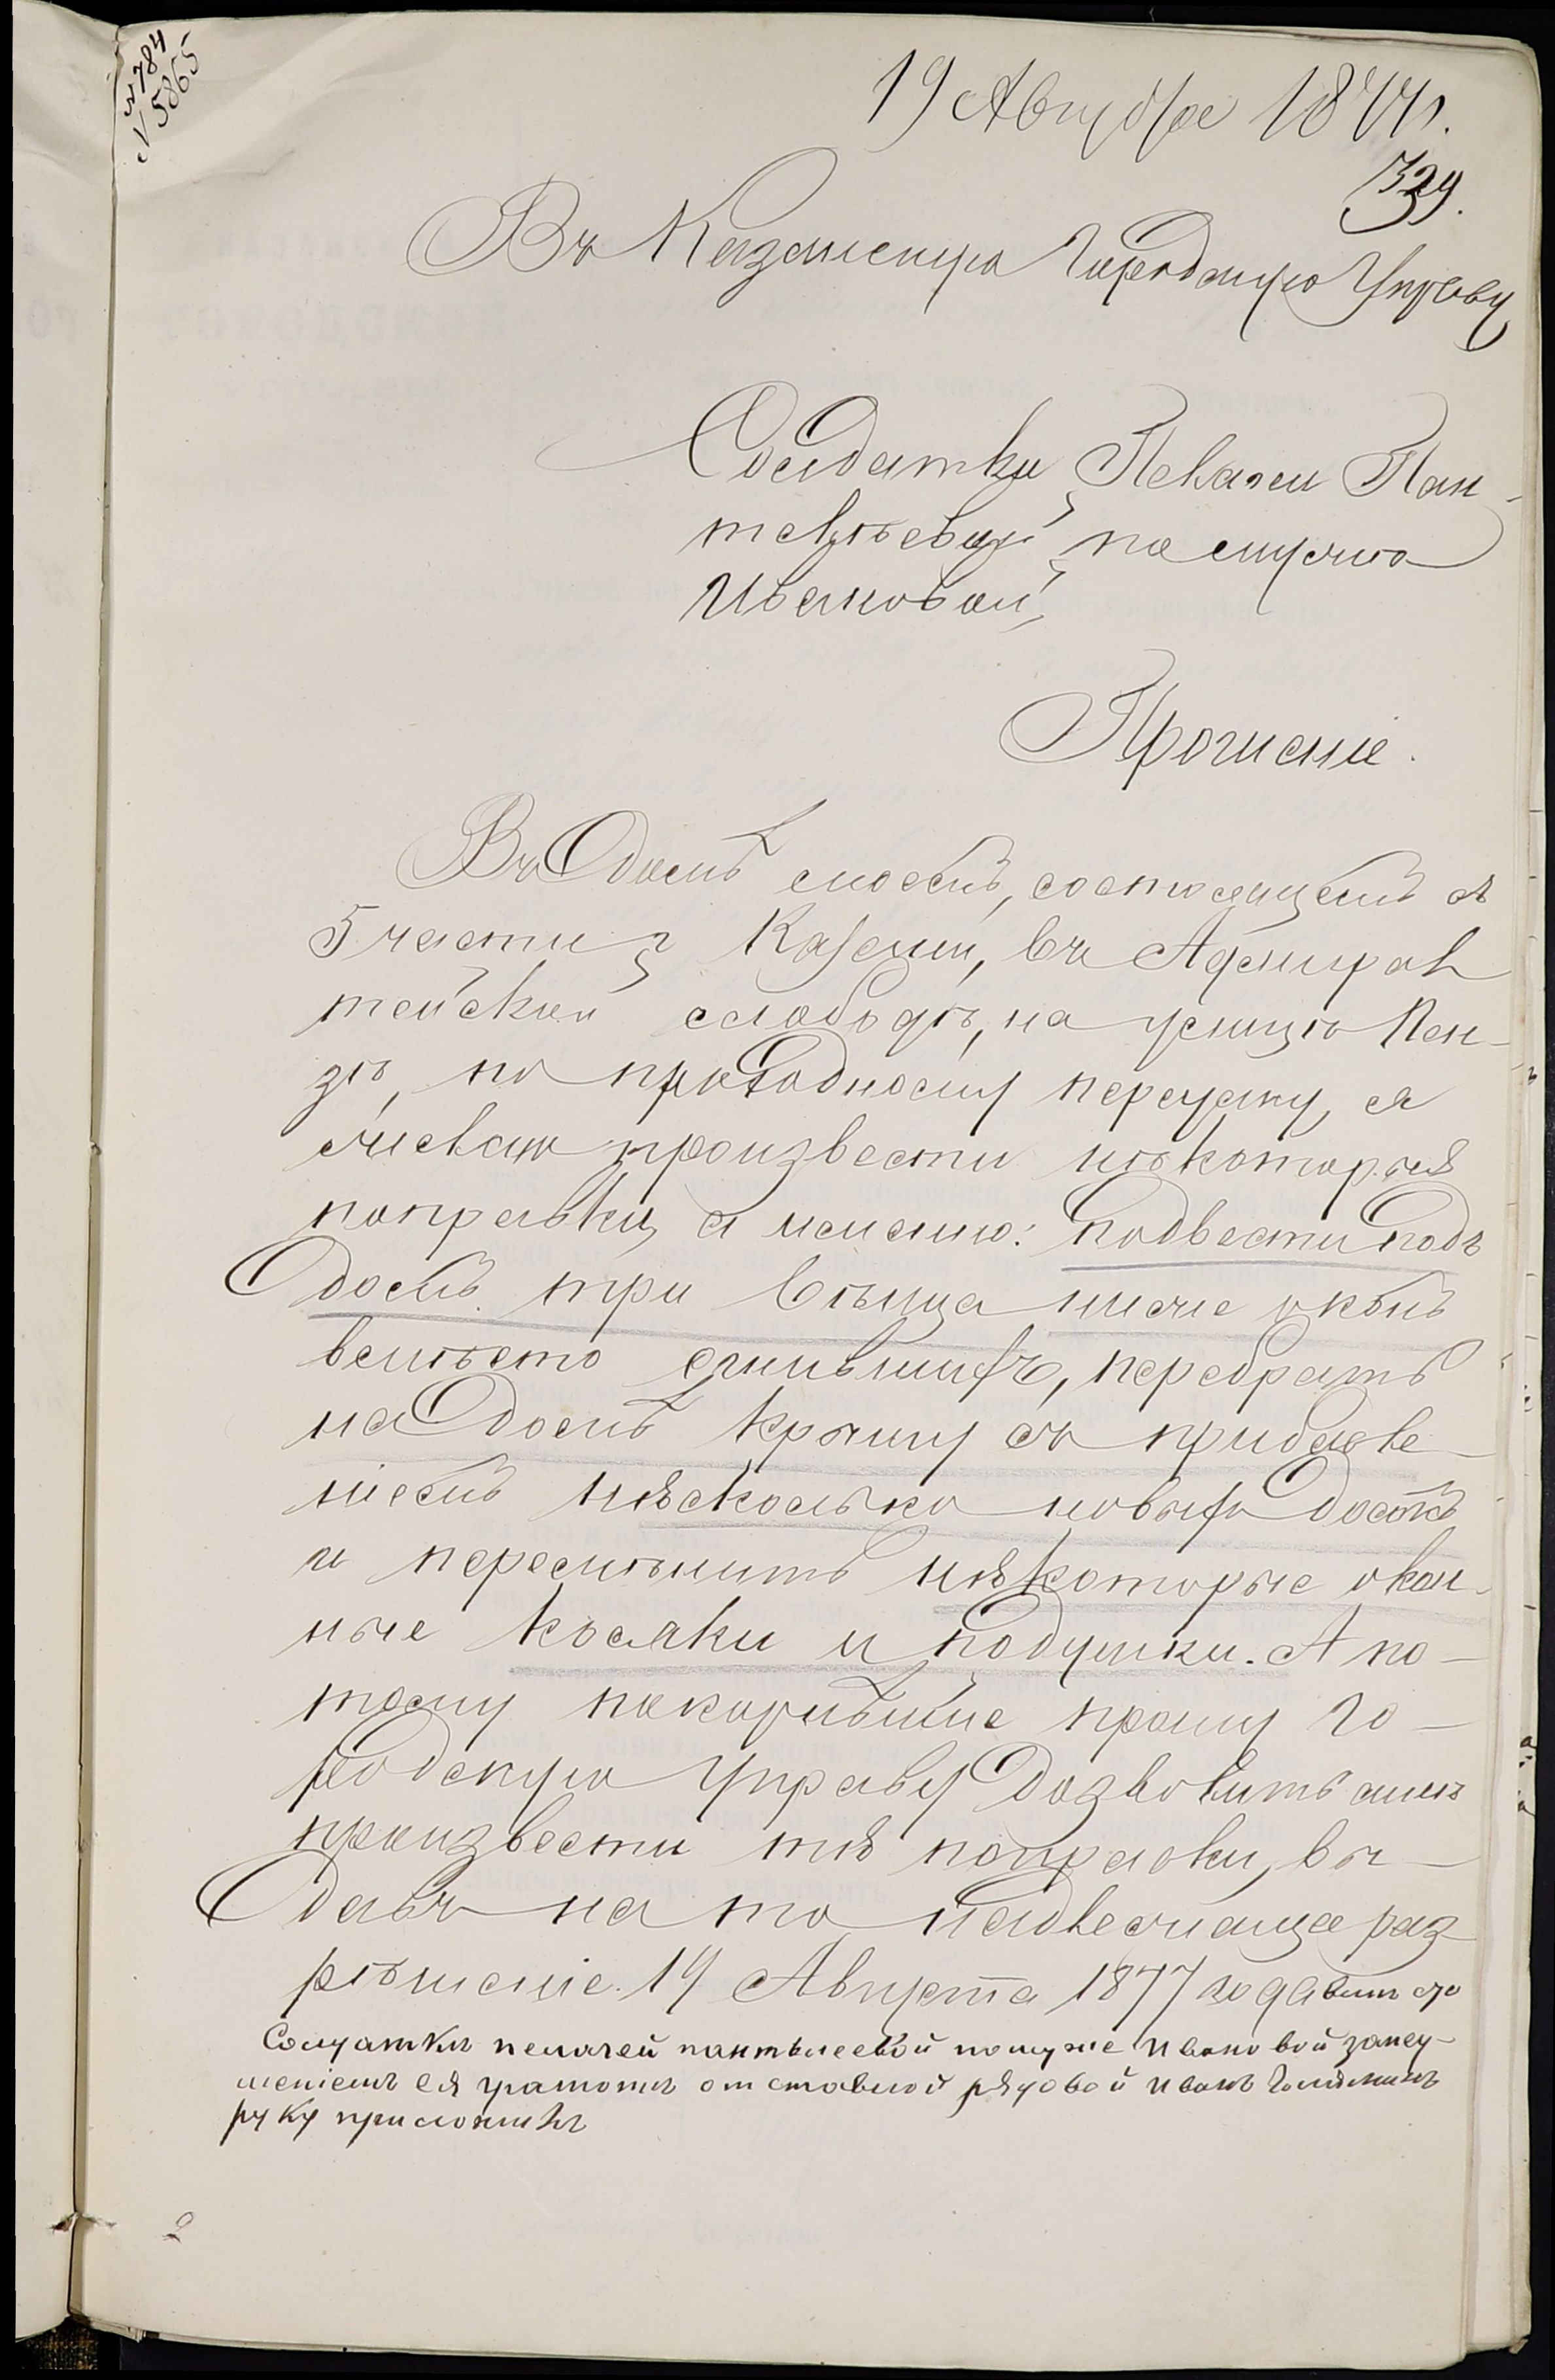 № 784
№ 5865
19 Августа 1877 г.
329.
Въ Казанскую Городскую Управу
Солдатки Пелагеи Пан-
телѣевой, по мужѣ
Ивановой,
Прошеніе.
Въ домѣ моемъ, состоящемъ въ
5 части г. Казани, въ Адмирал
тейской слободѣ, на улицѣ Пен-
зѣ, по проходному переулку, я
желаю произвести нѣкоторыя
поправки, а именно: подвести подъ
домъ три вѣнца ниже оконъ
вмѣсто сгнившихъ, перебрать
на домѣ крышу съ прибавле-
ніемъ нѣсколько новыхъ досокъ
и перемѣнить нѣкоторые окон-
ные косяки и подушки. А по-
тому покорнѣйше прошу Го-
родскую Управу дозволить мнѣ
произвести тѣ поправки, вы-
давъ на то надлежащее раз
рѣшеніе. 19 Августа 1877 года
Солдатки пелагеи пантелеевой помуже Ивановой занеу-
меніемъ ея грамоты отставной рядовой иванъ
руку приложилъ